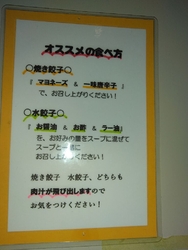 オススメの食べ方
○焼き餃子○
『マヨネーズ & 一味唐辛子』
で、お召し上がりください！
○水餃子○
『お醤油 & お酢 & ラー油』
を、お好みの量をスープに混ぜて
スープと一緒に
お召し上がりください！
焼き餃子 水餃子、どちらも
肉汁が飛び出しますので
お気をつけください！